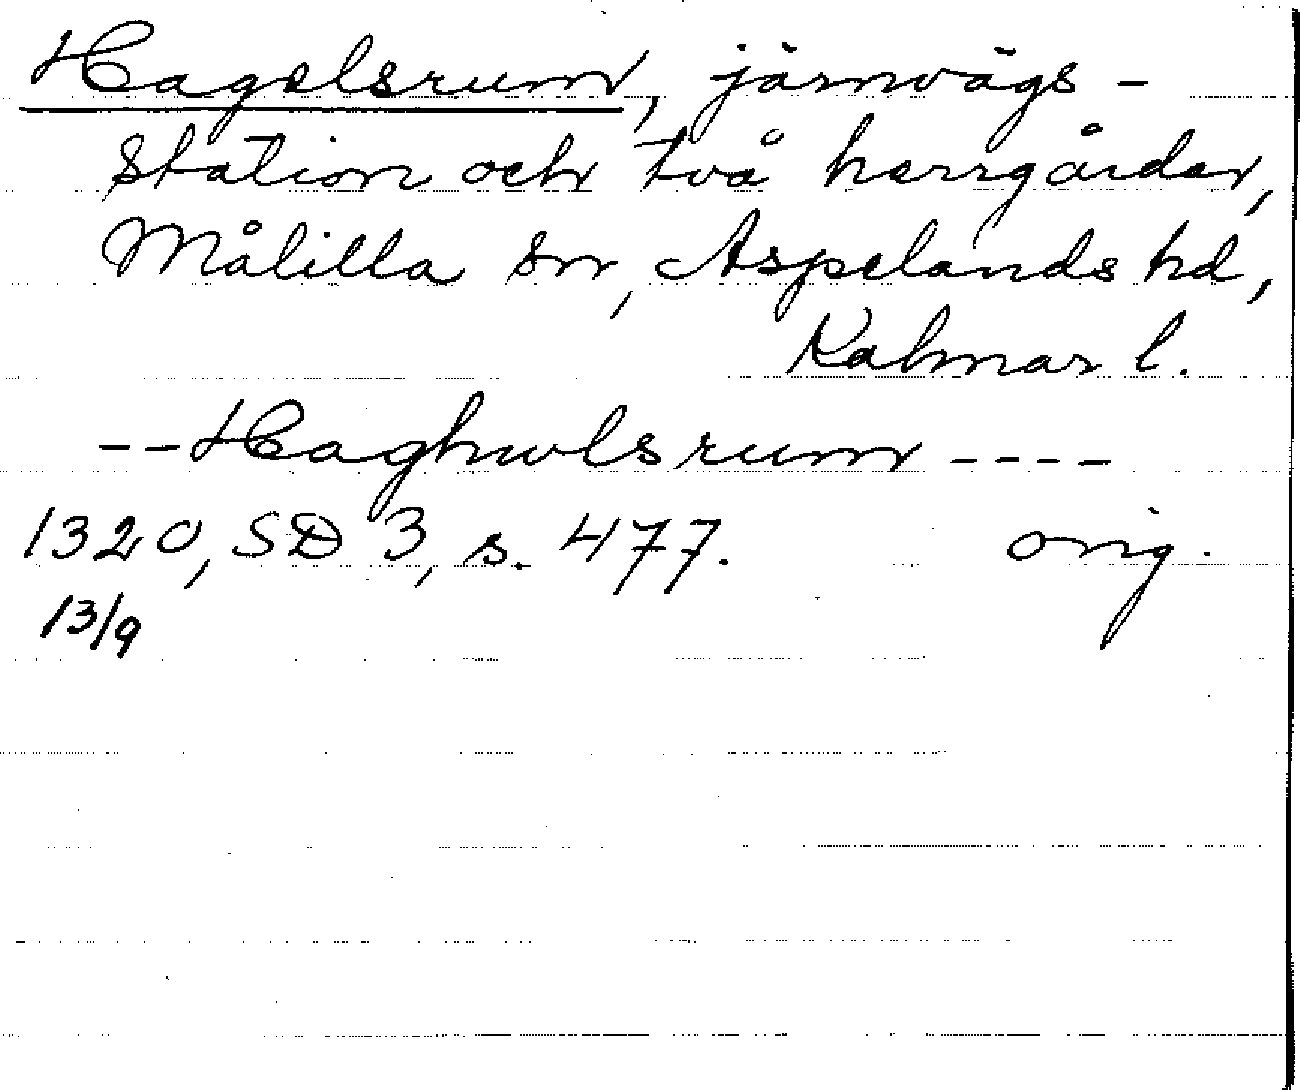 Hagelsrum, järnvägs-
station och två herrgårdar,
Målilla sn, Aspelands hd,
Kalmar l.
--Haghwlsrum----
1320, SD 3, s. 477. orig.
13/9